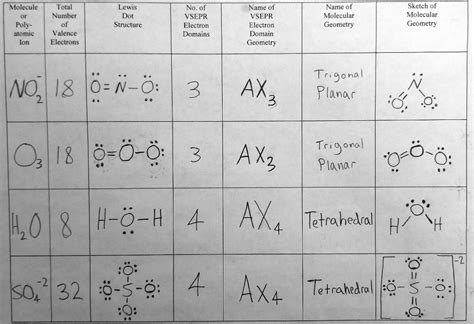 Molecule
or
Poly-
atomic
Ion
Total
Number
of
Valence
Electrons
Lewis
Dot
Structure
No. of
VSEPR
Electron
Domains
Name of
VSEPR
Electron
Domain
Geometry
Name of
Molecular
Geometry
Sketch of
Molecular
Geometry
NO₂⁻ 18 Ö=N̈-Ö: 3 AX₃ Trigonal
Planar
N
O O
O₃ 18 Ö=Ö-Ö: 3 AX₃ Trigonal
Planar
O=O-O
H₂O 8 H-Ö-H 4 AX₄ Tetrahedral
O
H H
SO₄⁻² 32
O
O-S-O
O
4 AX₄ Tetrahedral
-2
O
O-S-O
O